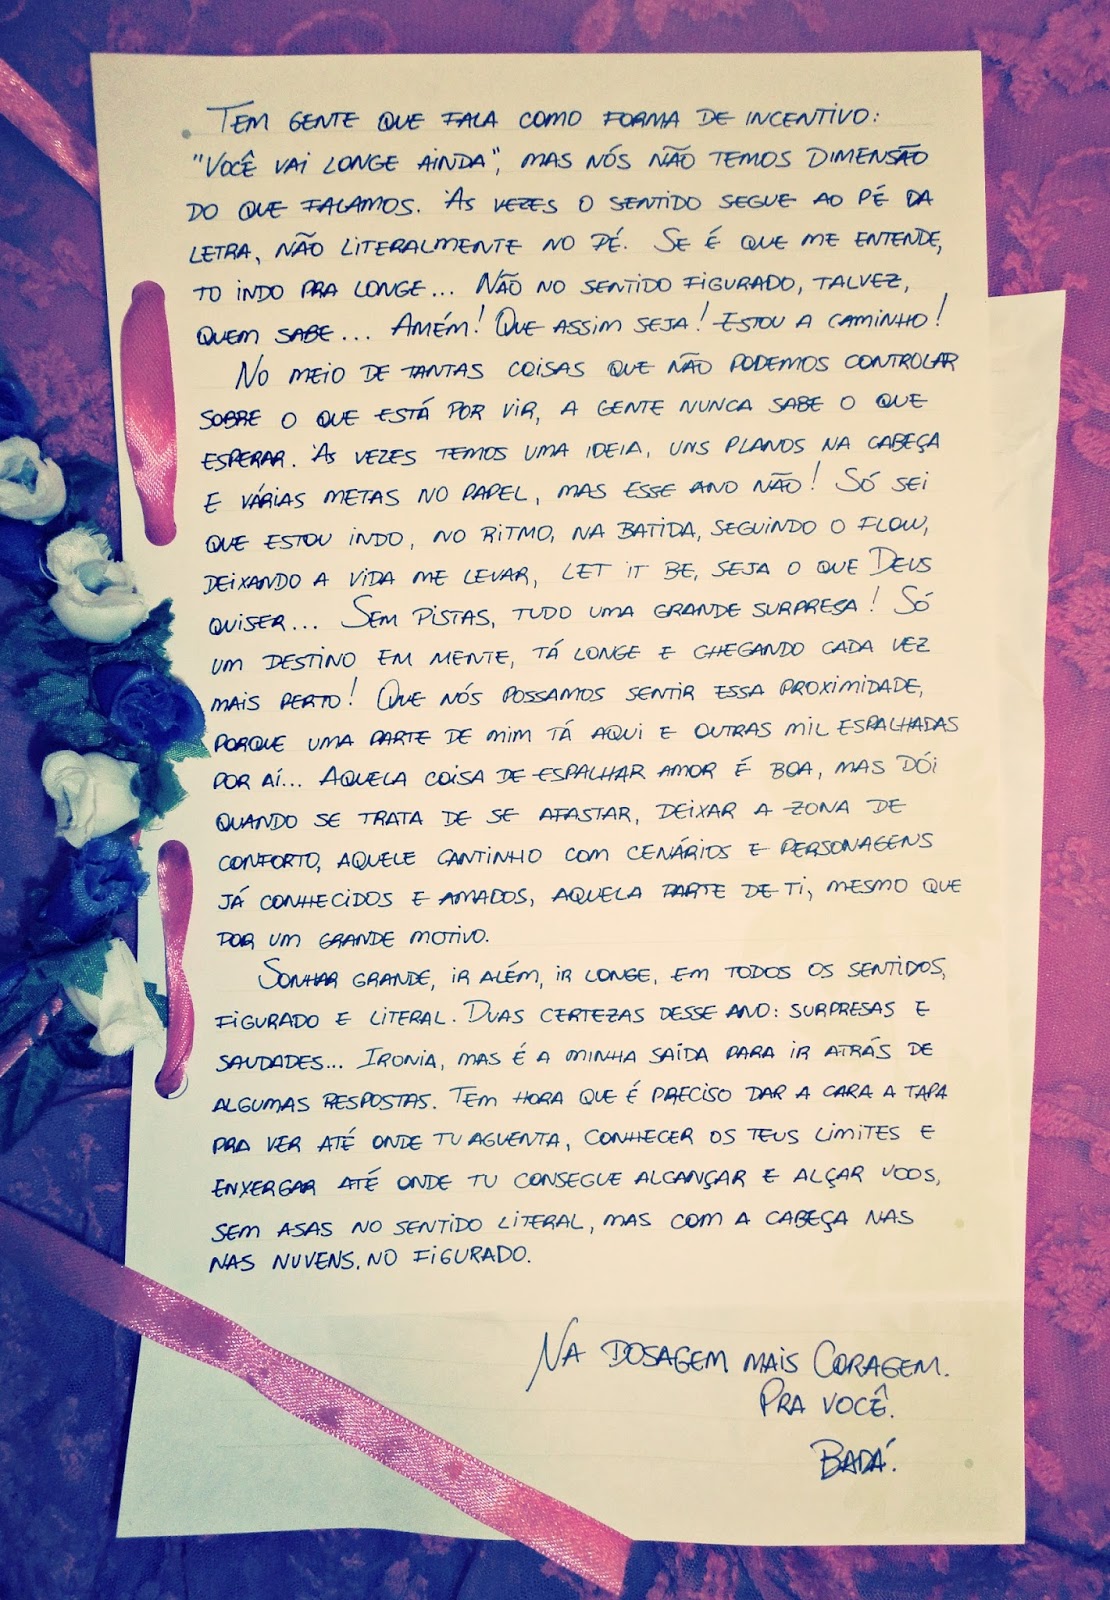 Tem gente que fala como forma de incentivo:
"Você vai longe ainda", mas nós não temos dimensão
do que falamos. Às vezes o sentido segue ao pé da
letra, não literalmente no pé. Se é que me entende,
to indo pra longe... Não no sentido figurado, talvez,
quem sabe... Amém! Que assim seja! Estou a caminho!
No meio de tantas coisas que não podemos controlar
sobre o que está por vir, a gente nunca sabe o que
esperar. Às vezes temos uma ideia, uns planos na cabeça
e várias metas no papel, mas esse ano não! Só sei
que estou indo, no ritmo, na batida, seguindo o flow,
deixando a vida me levar, let it be, seja o que Deus
quiser... Sem pistas, tudo uma grande surpresa! Só
um destino em mente, tá longe e chegando cada vez
mais perto! Que nós possamos sentir essa proximidade,
porque uma parte de mim tá aqui e outras mil espalhadas
por aí... Aquela coisa de espalhar amor é boa, mas dói
quando se trata de se afastar, deixar a zona de
conforto, aquele cantinho com cenários e personagens
já conhecidos e amados, aquela parte de ti, mesmo que
por um grande motivo.
Sonhar grande, ir além, ir longe, em todos os sentidos,
figurado e literal. Duas certezas desse ano: surpresas e
saudades... Ironia, mas é a minha saída para ir atrás de
algumas respostas. Tem hora que é preciso dar a cara a tapa
pra ver até onde tu aguenta, conhecer os teus limites e
enxergar até onde tu consegue alcançar e alçar voos,
sem asas no sentido literal, mas com a cabeça nas
nas nuvens, no figurado.
Na dosagem mais Coragem.
Pra você.
Badá.